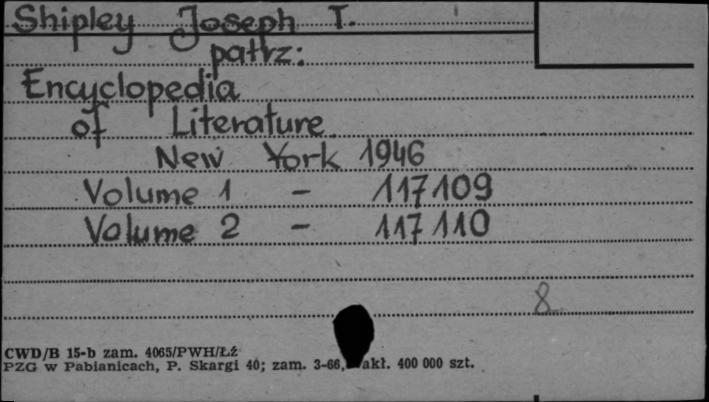 Shipley Joseph T.
patrz:
Encyclopedia
of Literature
New York 1946
Volume 1 - 117109
Volume 2 - 117110
8
CWD/B 15-b zam. 4065/PWH/Łź
PZG w Pabianicach, P. Skargi 40; zam. 3-66, akł. 400 000 szt.